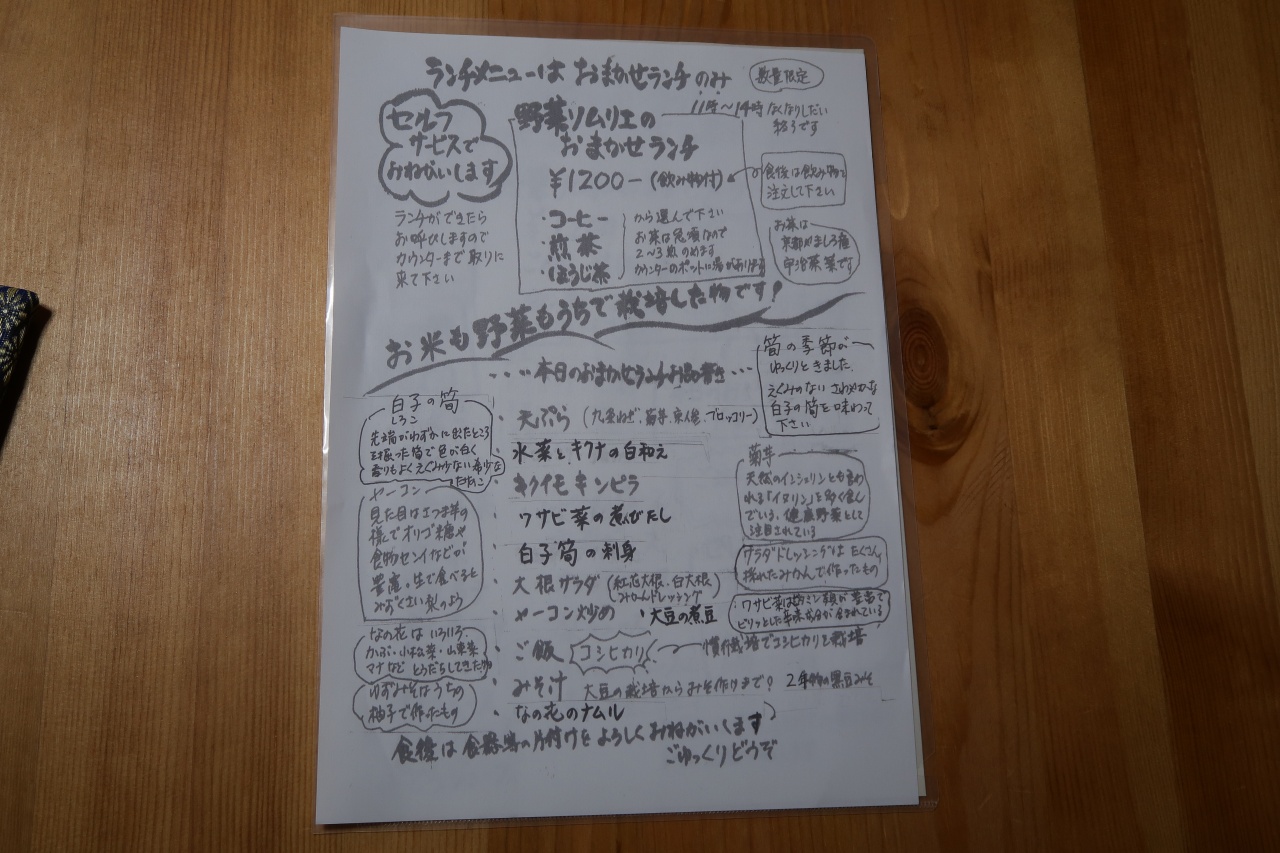 ランチメニューは おまかせランチのみ
数量限定
セルフ
サービスで
おねがいします
ランチができたら
お呼びしますので
カウンターまで取りに
来て下さい
野菜ソムリエの
おまかせランチ
11時〜14時 なくなりしだい
終了です
¥1200−(飲み物付)
食後は飲み物を
注文して下さい
・コーヒー
・煎茶
・ほうじ茶
から選んで下さい
お茶は急須なので
2〜3煎のめます
カウンターのポットに湯があります
お茶は
京都やましろ産
宇治茶葉です
お米も野菜もうちで栽培した物です!
・・・・本日のおまかせランチお品書き・・・
筍の季節が
ゆっくりときました
えくみのない さわやかな
白子の筍を味わって
下さい
白子の筍
しろこ
先端がわずかに出たところ
を掘った筍で色が白く
香りもよくえぐみ少ない希少な
たけのこ
ヤーコン
見た目はさつま芋の
様でオリゴ糖や
食物センイなどが
豊富。生で食べると
みずくさい梨のよう
なの花は いろいろ。
かぶ・小松菜・山東菜
マナなど とうだちしてきた物
ゆずみそはうちの
柚子で作ったもの
・天ぷら (九条ねぎ、菊芋、京人参、ブロッコリー)
水菜とキクナの白和え
・キクイモキンピラ
・ワサビ菜の煮びたし
・白子筍の刺身
・大根サラダ (紅芯大根、白大根)
みかんドレッシング
・ヤーコン炒め ・大豆の煮豆
・ご飯 コシヒカリ 慣行栽培でコシヒカリを栽培
・みそ汁 大豆の栽培からみそ作りまで? 2年物の黒豆みそ
・なの花のナムル
菊芋
天然のインシュリンとも言わ
れる「イヌリン」を多く含ん
でいる。健康野菜として
注目されている
サラダドレッシングは たくさん
採れたみかんで作ったもの
・ワサビ菜はビタミン類が豊富で
ピリッとした辛味成分が含まれている
食後は食器等の片付けをよろしくおねがいします
ごゆっくりどうぞ